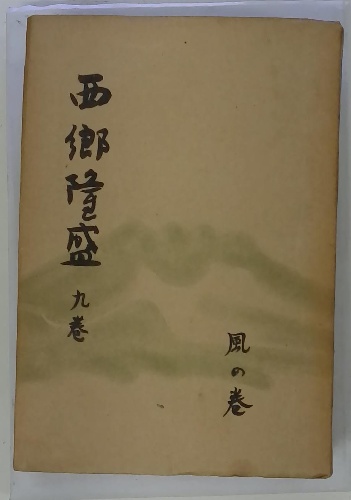 西郷隆盛
九巻
風の巻